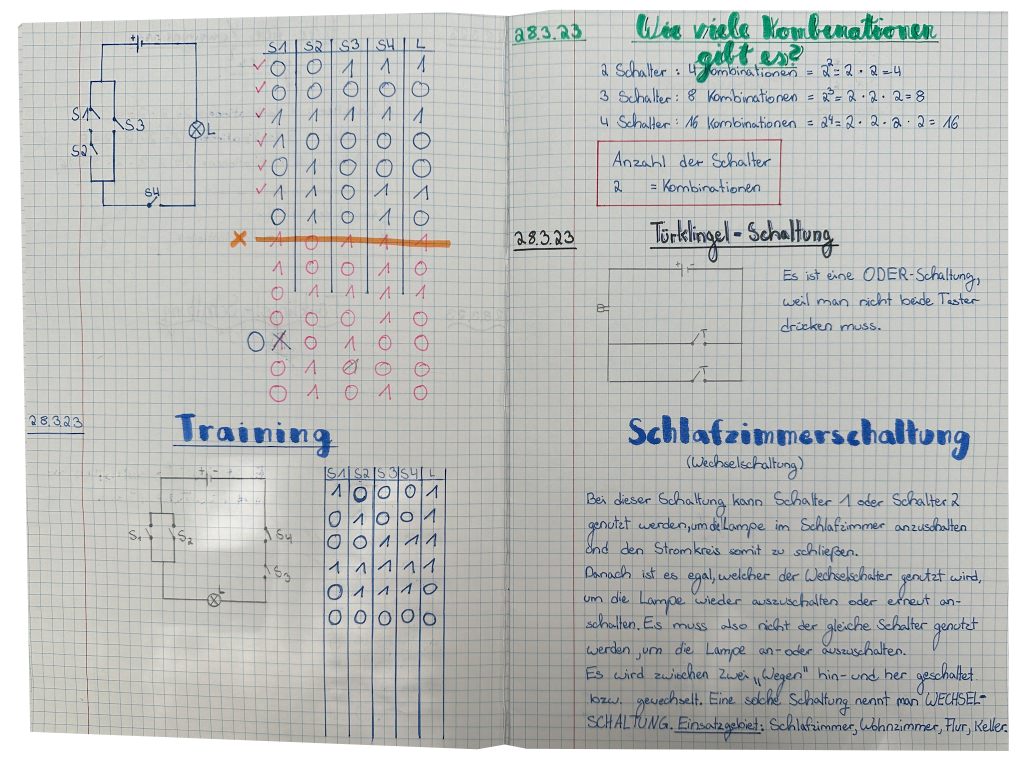 S1 S2 S3 S4 L
✓ 0 0 1 1 1
✓ 0 0 0 0 0
✓ 1 1 1 1 1
✓ 1 0 0 0 0
✓ 0 1 0 0 0
✓ 1 1 0 1 1
0 1 0 1 0
x 1 0 1 1 1
1 0 0 1 0
0 1 1 1
0 0 0 1 0
0 0 1 0 0
0 1 0 0
0 1 0 1 0
+ -
S1
S3
S2
L
S4
28.3.23
Training
S1 S2 S3 S4 L
1 0 0 0 1
0 1 0 0 1
0 0 1 1 1
1 1 1 1 1
0 1 1 1 0
0 0 0 0 0
+ -
S1 S2
S4
S3
28.3.23 Wie viele Kombenationen
gibt es?
2 Schalter : 4 Kombinationen = 2² = 2 · 2 = 4
3 Schalter : 8 Kombinationen = 2³ = 2 · 2 · 2 = 8
4 Schalter : 16 Kombinationen = 2⁴ = 2 · 2 · 2 · 2 = 16
Anzahl der Schalter
2 = Kombinationen
28.3.23 Türklingel - Schaltung
+ -
T
T
Es ist eine ODER-Schaltung,
weil man nicht beide Taster
drücken muss.
Schlafzimmerschaltung
(Wechselschaltung)
Bei dieser Schaltung kann Schalter 1 oder Schalter 2
genutzt werden, um die Lampe im Schlafzimmer anzuschalten
und den Stromkreis somit zu schließen.
Danach ist es egal, welcher der Wechselschalter genutzt wird,
um die Lampe wieder auszuschalten oder erneut an-
schalten. Es muss also nicht der gleiche Schalter genutzt
werden, um die Lampe an- oder auszuschalten.
Es wird zwischen zwei „Wegen" hin- und her geschaltet
bzw. gewechselt. Eine solche Schaltung nennt man WECHSEL-
SCHALTUNG. Einsatzgebiet: Schlafzimmer, Wohnzimmer, Flur, Keller.